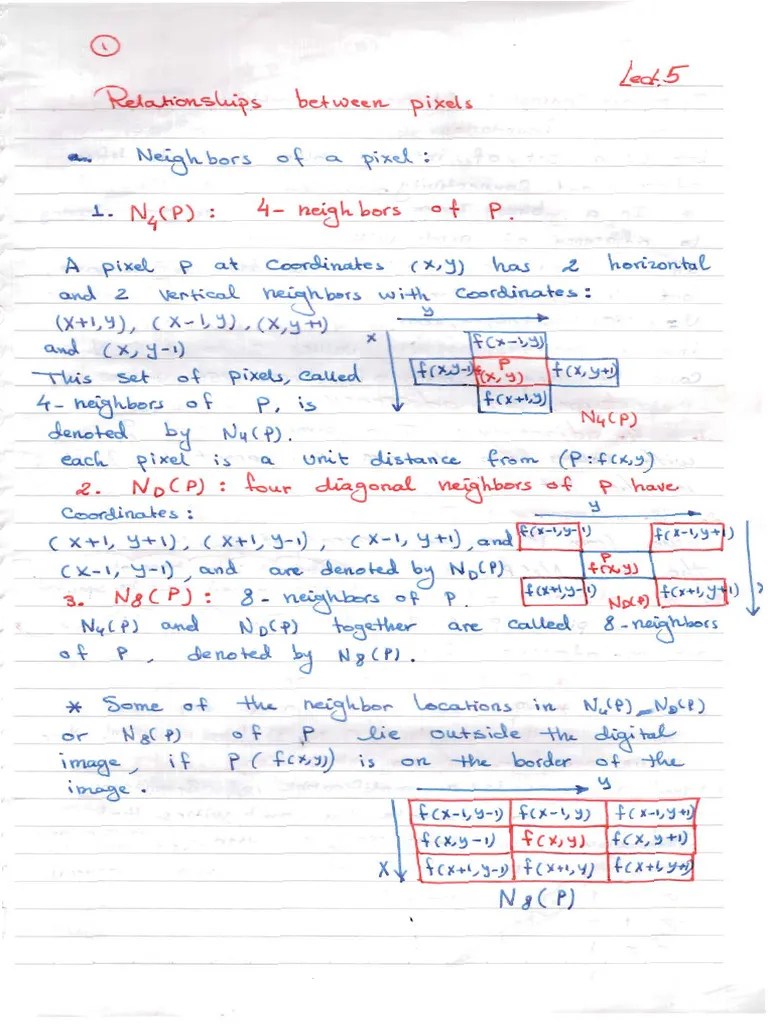 1
Lect.5
Relationships between pixels
a. Neighbors of a pixel :
1. N4(P) : 4- neighbors of P.
A pixel P at coordinates (x,y) has 2 horizontal
and 2 vertical neighbors with coordinates :
(x+1,y), (x-1,y), (x,y+1)
and (x, y-1)
This set of pixels, called
4-neighbors of P, is
denoted by N4(P).
y
x
f(x-1,y)
f(x,y-1) P (x,y) f(x,y+1)
f(x+1,y)
N4(P)
each pixel is a unit distance from (P:f(x,y)
2. ND(P) : four diagonal neighbors of P have
Coordinates :
(x+1, y+1), (x+1, y-1), (x-1, y+1), and
(x-1, y-1), and are denoted by ND(P)
y
f(x-1,y-1) f(x-1, y+1)
P
f(x,y)
f(x+1,y-1) ND(P) f(x+1,y+1)
3. N8(P) : 8-neighbors of P.
N4(P) and ND(P) together are called 8-neighbors
of P, denoted by N8(P).
* Some of the neighbor locations in N4(P) ND(P)
or N8(P) of P lie outside the digital
image, if P( f(x,y)) is on the border of the
image.
y
x
f(x-1,y-1) f(x-1,y) f(x-1,y+1)
f(x,y-1) f(x,y) f(x,y+1)
f(x+1,y-1) f(x+1,y) f(x+1,y+1)
N8(P)